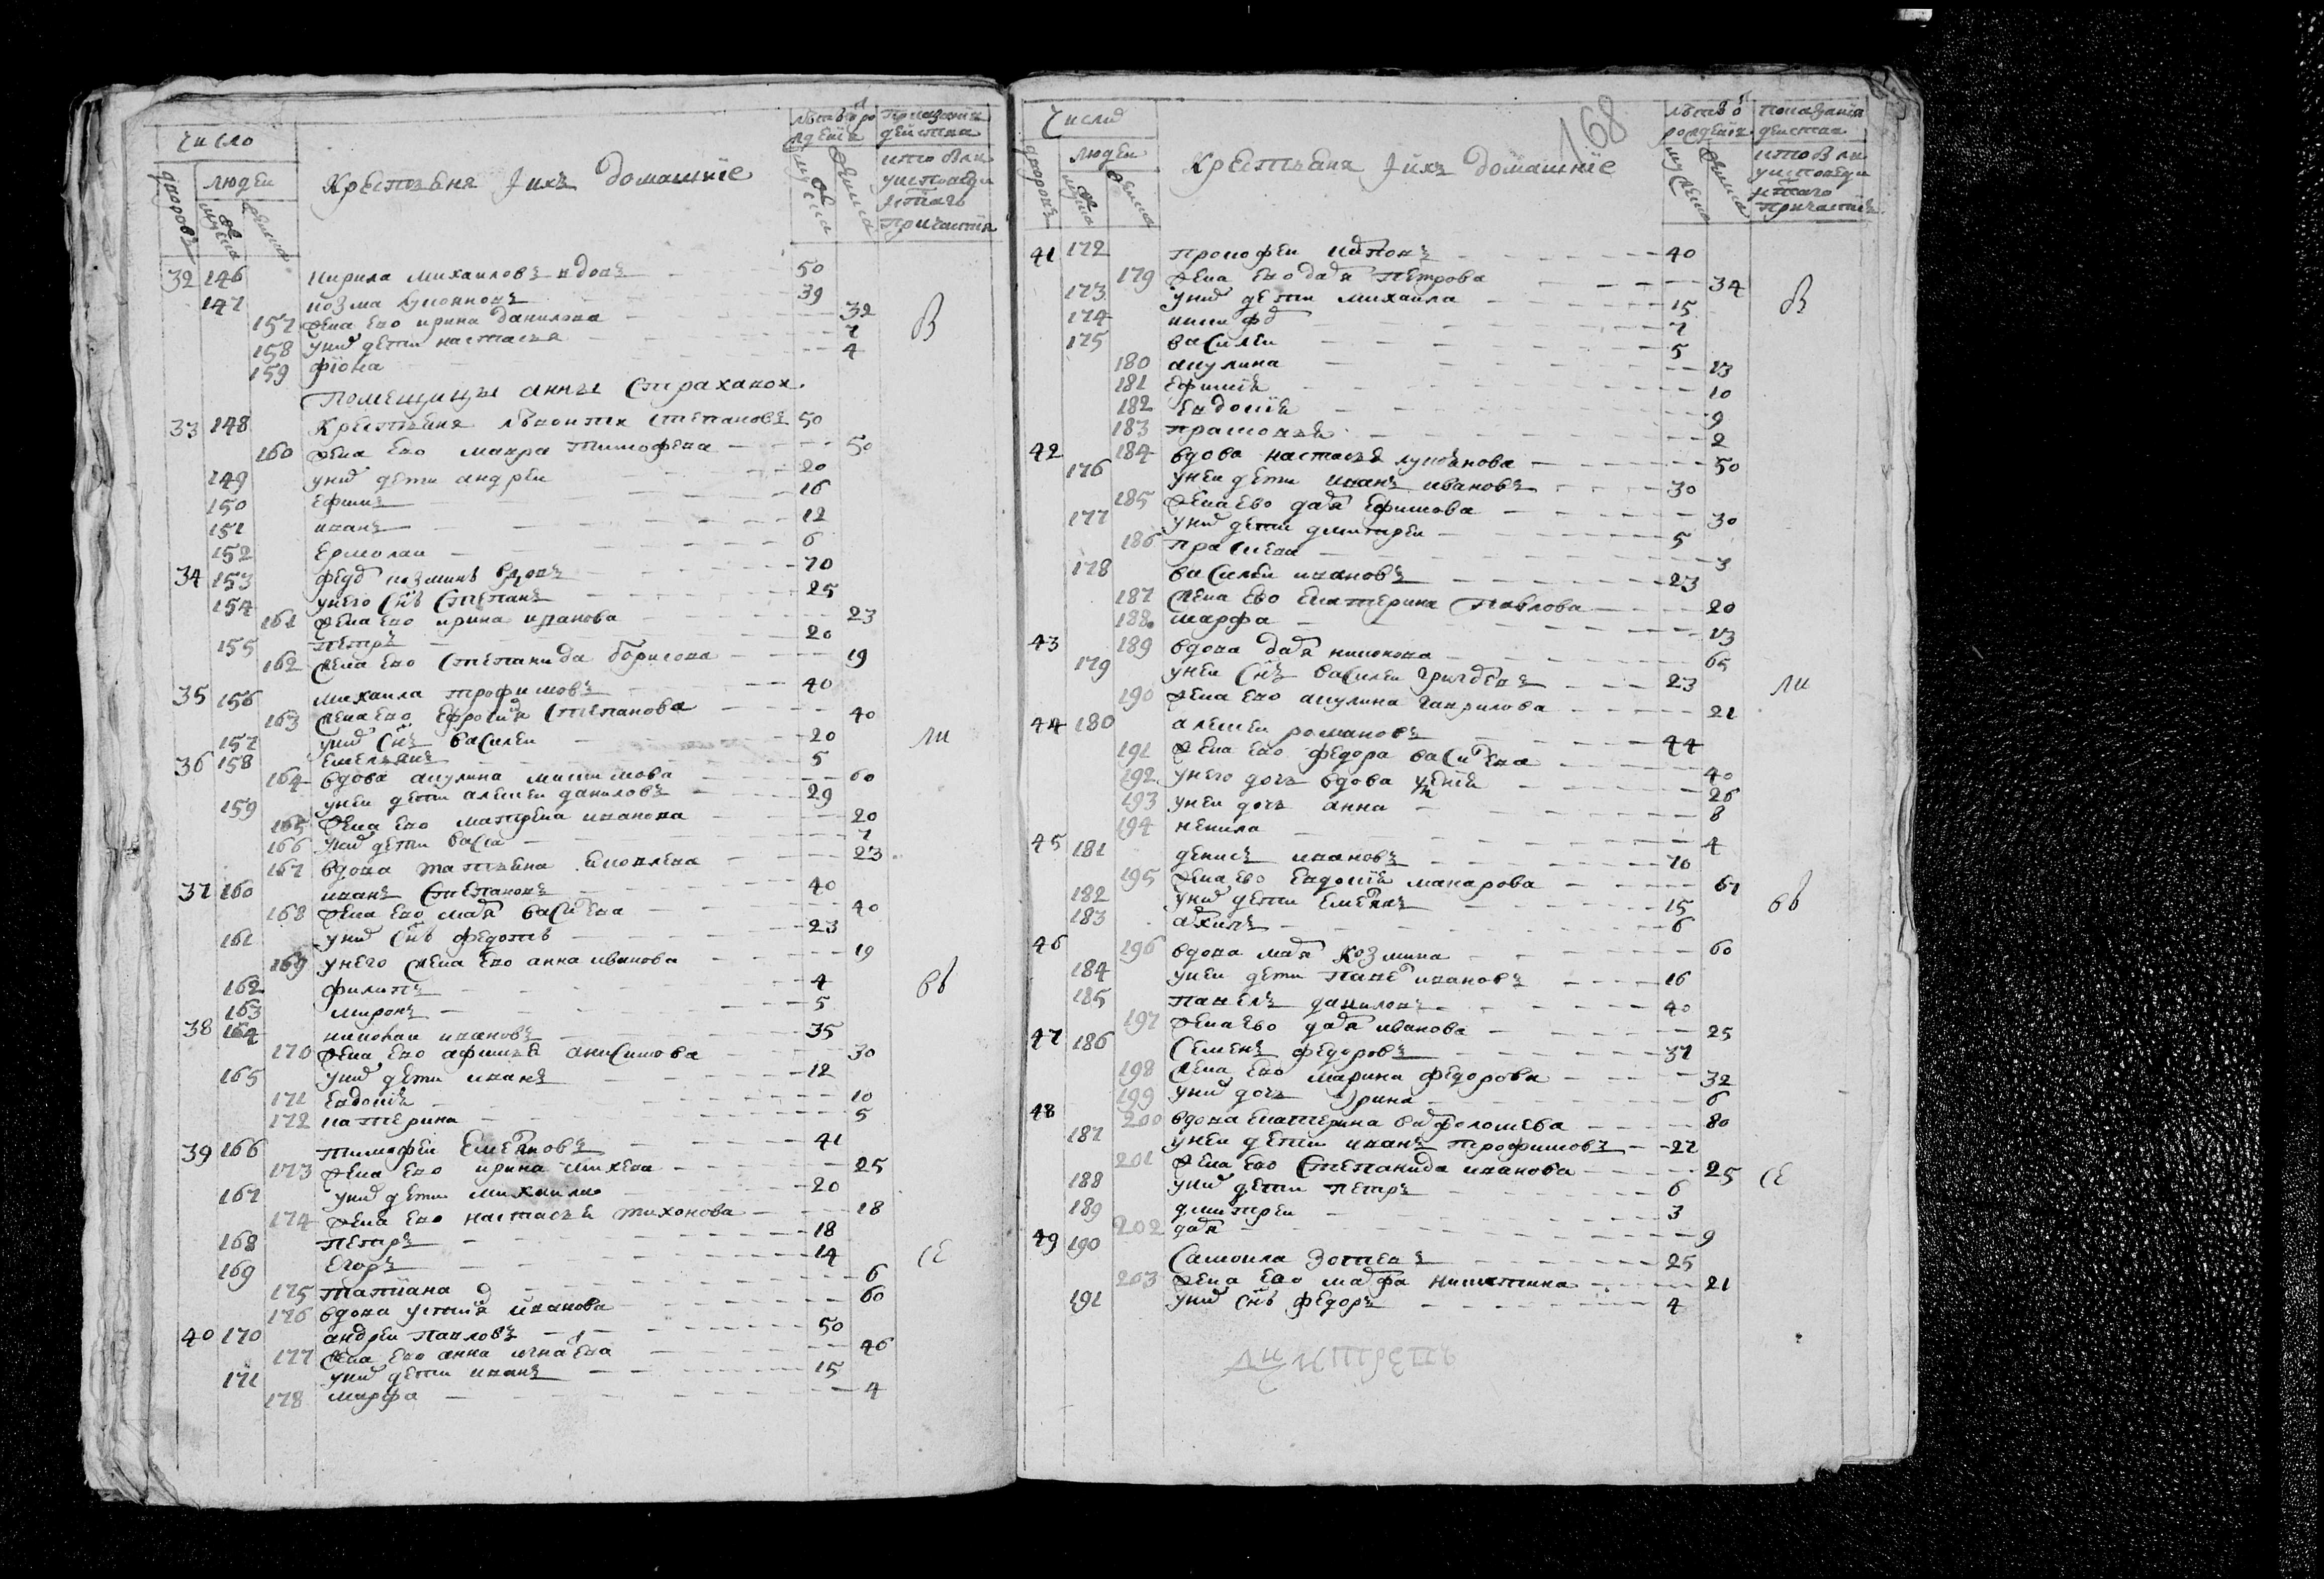 Число
Людеи
дворовъ
мужеска
женска
Крестьяня Јихъ домашніе
лѣтъ ѿ рождения
мужеска
женска
Показания действа хто былъ у исповеди и ст̃аго причастия
32 146 Кирила михаиловъ вдовъ 50
147 козма 39
157 жена ево ирина данилова 32
158 унихъ дети настасья 7
159 фіона 4
В
Помещицы анны Страховои
33 148 Крестьяня лѣвонтеи степановъ 50
160 жена ево мавра тимофеева 50
149 унихъ дети андреи 20
150 Ефимъ 16
151 иванъ 12
152 Ермолаи 6
34 153 федоръ козминъ вдовъ 70
154 унего снъ Степанъ 25
161 жена ево ирина иванова 23
155 петръ 20
162 жена ево степанида борисова 19
35 156 михаила трофимовъ 40
163 жена ево Ефросиня степанова 40
157 унихъ снъ василеи 20
ли
36 158 Емельянъ 5
164 вдова акулина 60
159 унеи дети алексеи даниловъ 29
165 жена ево матрена иванова 20
166 унихъ дети васса 7
167 вдова татьяна 23
37 160 иванъ Степановъ 40
168 жена ево маря василева 40
161 унихъ снъ федотъ 23
169 унего жена ево анна иванова 19
162 филипъ 4
вв
163 миронъ 5
38 164 николаи ивановъ 35
170 жена ево афимья анисимова 30
165 унихъ дети иванъ 12
171 Евдокия 10
172 катерина 5
39 166 тимофеи Емеляновъ 41
173 жена ево ирина михеева 25
167 унихъ дети михаила 20
174 жена ево настасья тихонова 18
168 петръ 18
169 Егоръ 14
се
175 татиана 6
176 вдова устиня иванова 60
40 170 андреи павловъ 50
177 жена ево анна игнатева 46
171 унихъ дети иванъ 15
178 марфа 4
168
Число
Людеи
дворовъ
мужеска
женска
Крестьяня Јихъ домашніе
лѣтъ ѿ рождения
мужеска
женска
Показания действа хто былъ у исповеди и ст̃аго причастия
41 172 прокофеи 40
179 жена ево даря Петрова 34
173 унихъ дети михаила 15
В
174 никифоръ 7
175 василеи 5
180 акулина 13
181 Ефимия 10
182 Евдокия 9
183 прасковья 2
42 184 вдова настасья лукянова 50
176 унеи дети иванъ ивановъ 30
185 жена ево даря Ефимова 30
177 унихъ дети дмитреи 5
186 прасковя 3
178 василеи ивановъ 23
187 жена ево Екатерина Павлова 20
188 марфа 13
43 189 вдова даря никонова 65
179 унеи снъ василеи 23
ли
190 жена ево акулина гаврилова 21
44 180 алексеи романовъ 44
191 жена ево федора василева 40
192 унего дочь вдова 26
193 унеи дочь анна 8
194 ненила 4
45 181 денисъ ивановъ 70
195 жена ево Евдокия макарова 67
182 унихъ дети Емелянъ 15
вв
183 архипъ 6
46 196 вдова маря козмина 60
184 унеи дети павелъ ивановъ 16
185 павелъ даниловъ 40
197 жена ево даря иванова 25
47 186 Семенъ федоровъ 37
198 жена ево марина федорова 32
199 унихъ дочь Ирина 6
48 200 вдова Екатерина варфоломеева 80
187 унеи дети иванъ трофимовъ 27
201 жена ево Степанида иванова 25
се
188 унихъ дети петръ 6
189 дмитреи 3
202 даря 9
49 190 Самоила Зотеевъ 25
203 жена ево марфа никитина 21
191 унихъ снъ федоръ 4